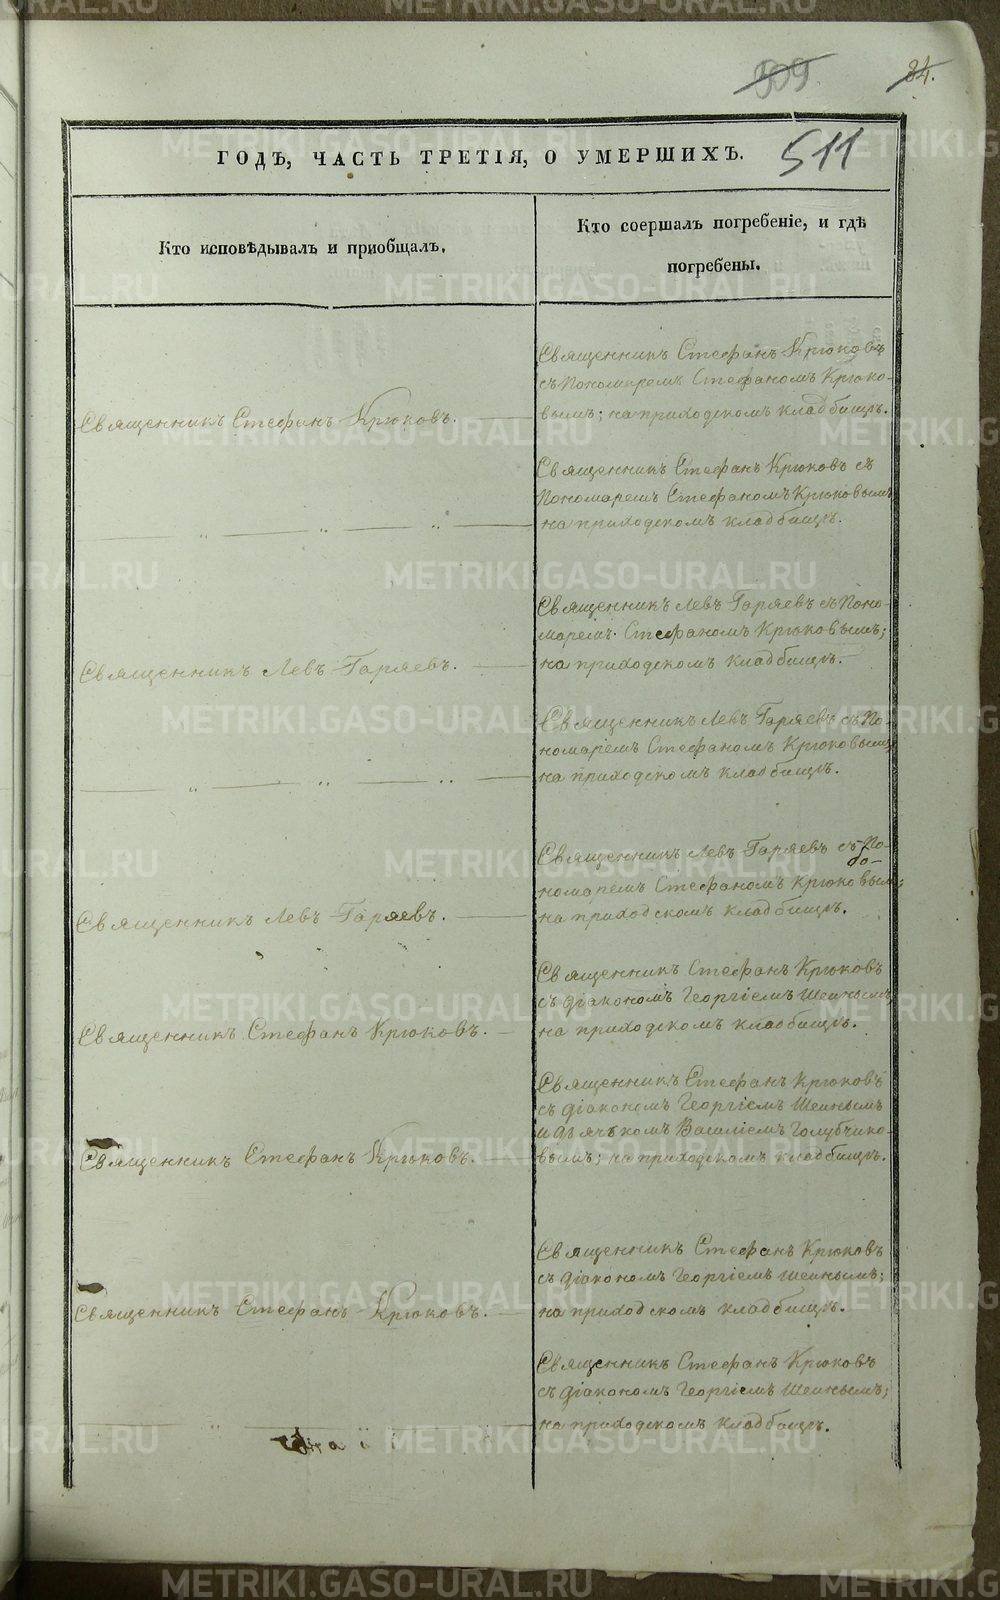 509.
84.
ГОДЪ, ЧАСТЬ ТРЕТІЯ, О УМЕРШИХЪ.
511
Кто исповѣдывалъ и приобщалъ.
Кто соершалъ погребеніе, и гдѣ
погребены.
Священникъ Стефанъ Крюковъ
съ Пономаремъ Стефаномъ Крюко-
вымъ; на приходскомъ кладбищѣ.
Священникъ Стефанъ Крюковъ.
Священникъ Стефанъ Крюковъ съ
Пономаремъ Стефаномъ Крюковымъ
на приходскомъ кладбищѣ.
„ „ „
Священникъ Левъ Гаряевъ съ Поно-
маремъ Стефаномъ Крюковымъ;
на приходскомъ кладбищѣ.
Священникъ Левъ Гаряевъ.
Священникъ Левъ Гаряевъ съ По-
номаремъ Стефаномъ Крюковымъ
на приходскомъ кладбищѣ.
„ „ „
Священникъ Левъ Гаряевъ съ По-
номаремъ Стефаномъ Крюковым;
на приходскомъ кладбищѣ.
Священникъ Левъ Гаряевъ.
Священникъ Стефанъ Крюковъ
съ діакономъ Георгіемъ Шеинымъ
на приходскомъ кладбищѣ.
Священникъ Стефанъ Крюковъ.
Священникъ Стефанъ Крюковъ
съ діакономъ Георгіемъ Шеинымъ
и дьячкомъ Василіемъ Голубчико-
вымъ; на приходскомъ кладбищѣ.
Священникъ Стефанъ Крюковъ.
Священникъ Стефанъ Крюковъ
съ діакономъ Георгіемъ Шеинымъ;
на приходскомъ кладбищѣ.
Священникъ Стефанъ Крюковъ.
Священникъ Стефанъ Крюковъ
съ діакономъ Георгіемъ Шеинымъ;
на приходскомъ кладбищѣ.
METRIKI.GASO-URAL.RU